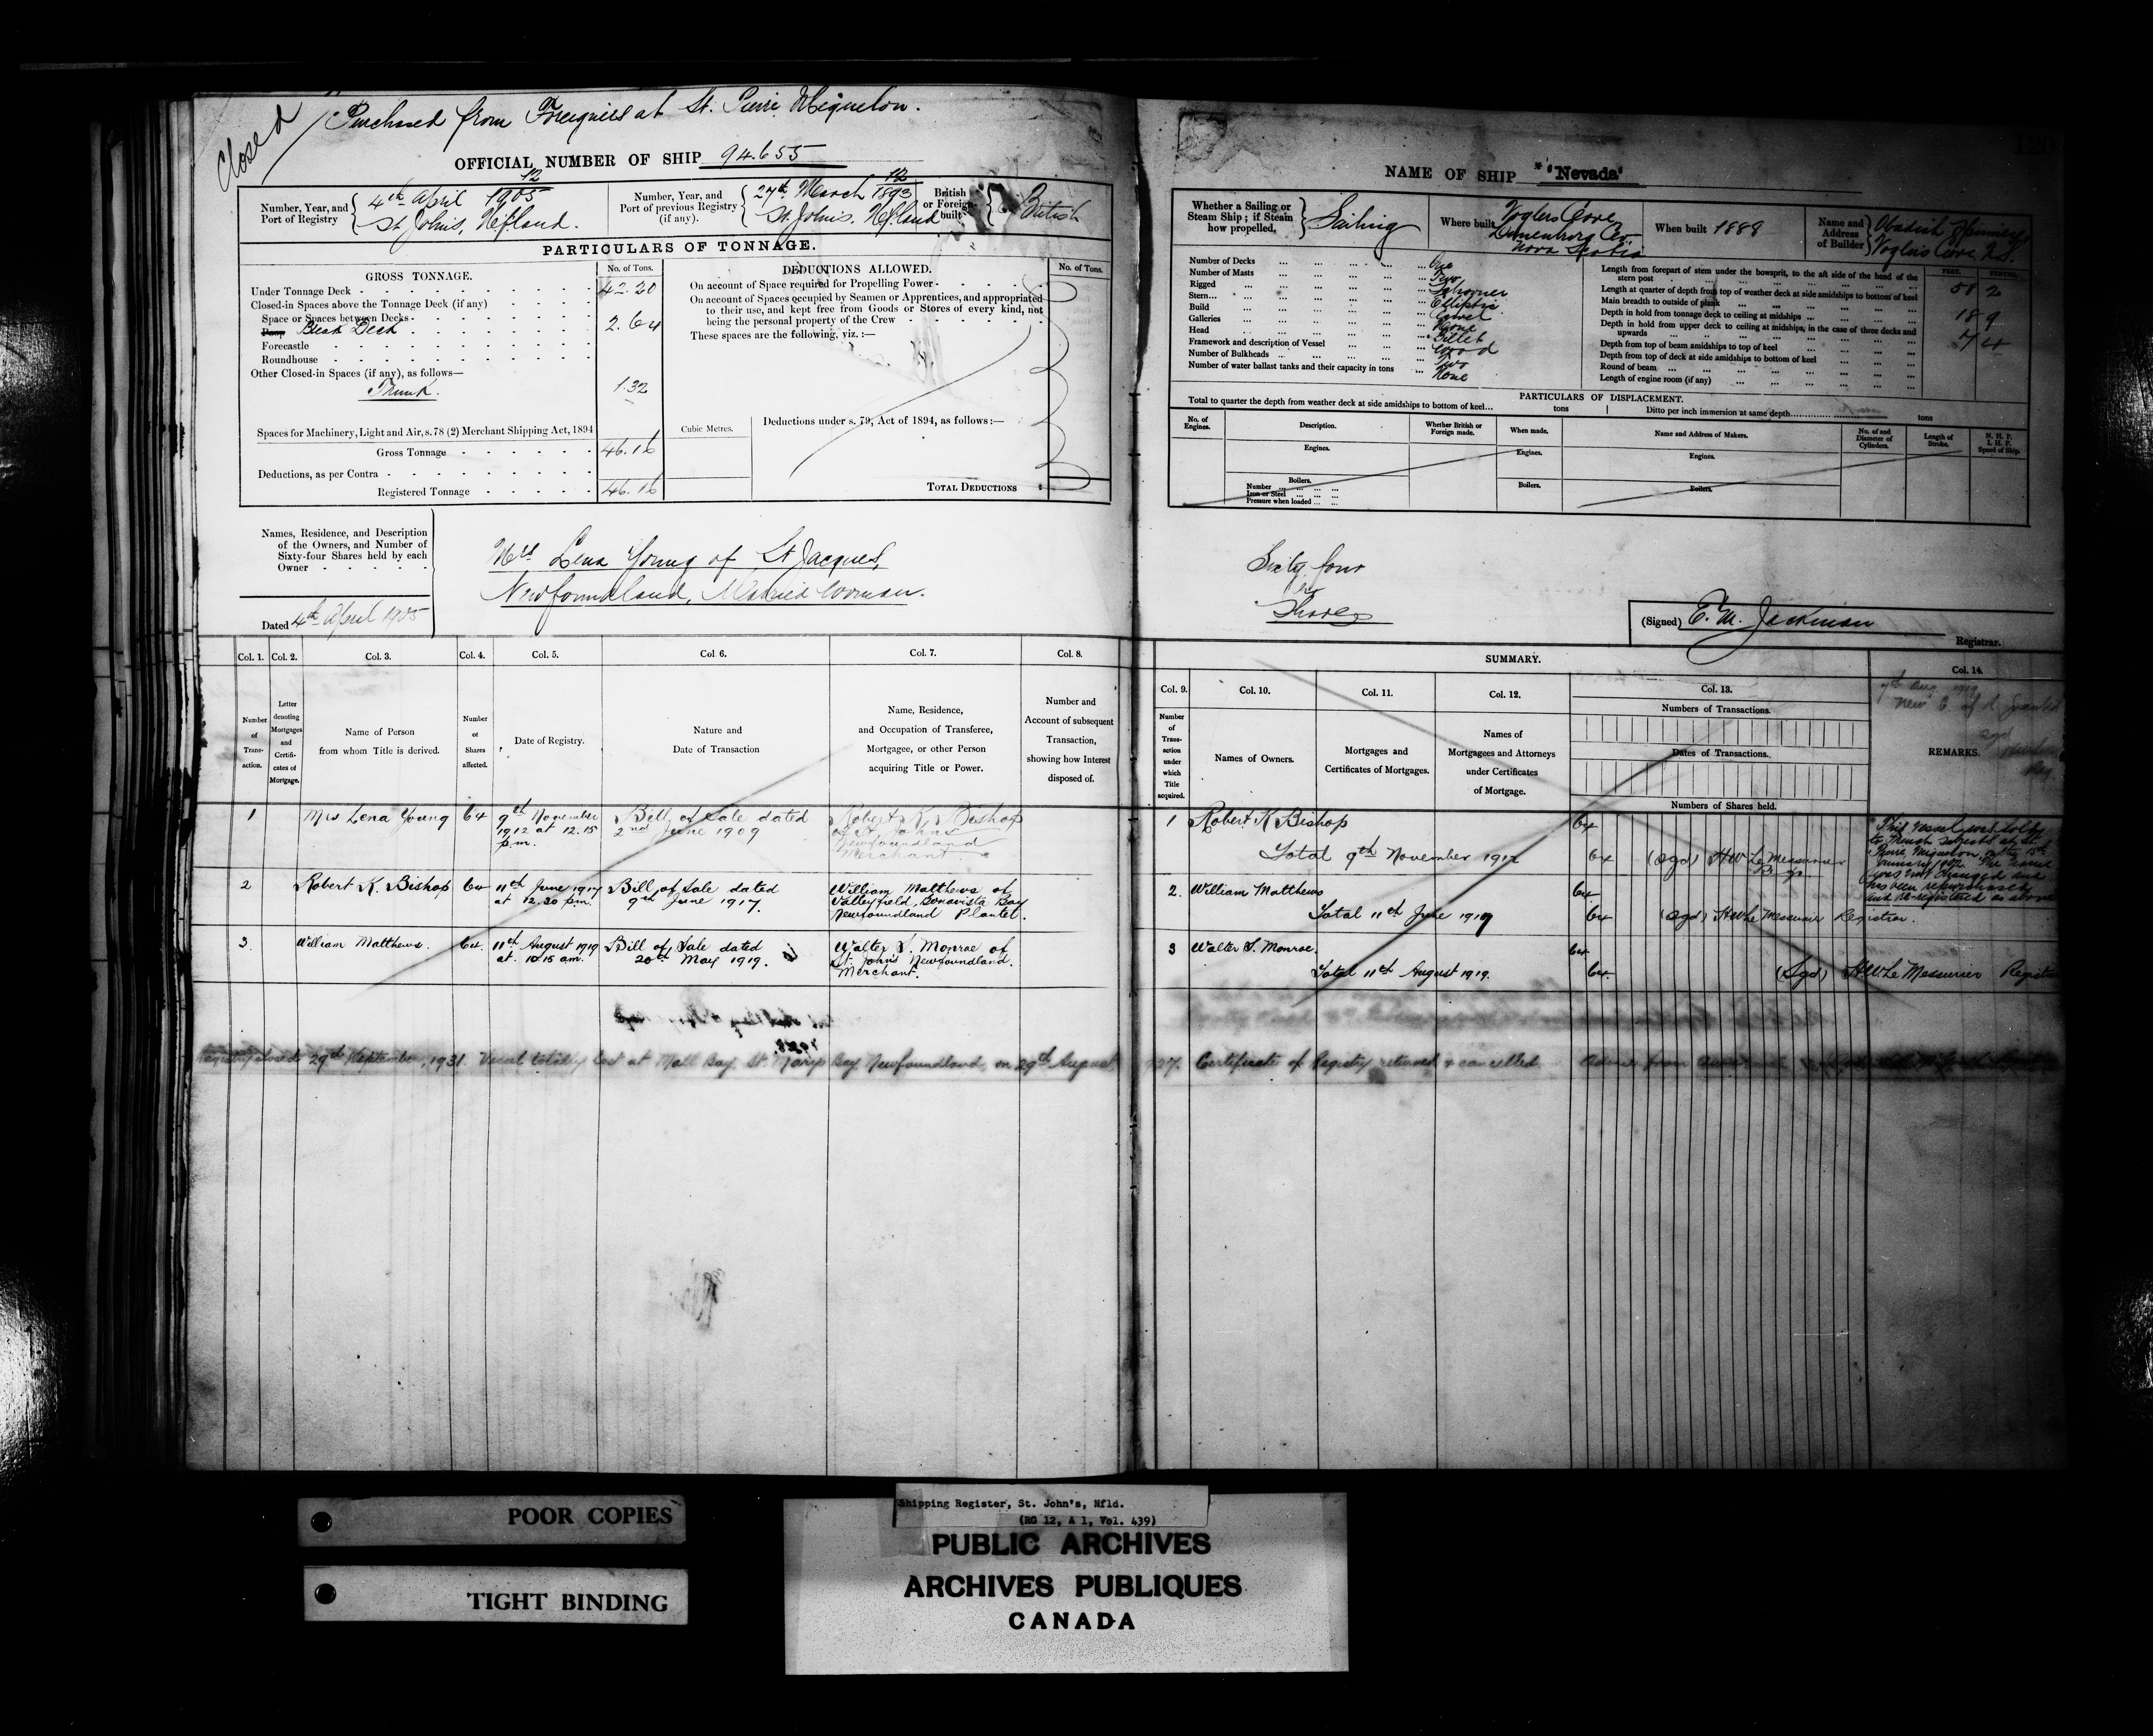 Closed
Purchased from Foreigners at St. Pierre Miquelon.
OFFICIAL NUMBER OF SHIP 94.655
Number, Year, and
Port of Registry
12
4th April 1905
St John's, Nfland.
Number, Year, and
Port of previous Registry
(if any).
12
27th March 1893
St. John's. Nfland
British
or Foreign
built
British
PARTICULARS OF TONNAGE.
GROSS TONNAGE.
No. of Tons.
Under Tonnage Deck
42.20
Closed-in Spaces above the Tonnage Deck (if any)
Space or Spaces between Decks
Poop Break Deck
2.64
Forecastle
Roundhouse
Other Closed-in Spaces (if any), as follows—
Trunk.
1.32
Spaces for Machinery, Light and Air, s.78 (2) Merchant Shipping Act, 1894
Gross Tonnage
46.16
Cubic Metres.
Deductions, as per Contra
Registered Tonnage
46.16
DEDUCTIONS ALLOWED.
No. of Tons.
On account of Space required for Propelling Power
On account of Spaces occupied by Seamen or Apprentices, and appropriated
to their use, and kept free from Goods or Stores of every kind, not
being the personal property of the Crew
These spaces are the following, viz. :—
Deductions under s. 79, Act of 1894, as follows :—
TOTAL DEDUCTIONS
Names, Residence, and Description
of the Owners, and Number of
Sixty-four Shares held by each
Owner
Mrs Lena Young of St Jacques,
Newfoundland, Married Woman.
Dated 4th April 1905
Col. 1. Col. 2. Col. 3. Col. 4. Col. 5. Col. 6. Col. 7. Col. 8.
Number
of
Trans-
action.
Letter
denoting
Mortgages
and
Certifi-
cates of
Mortgage.
Name of Person
from whom Title is derived.
Number
of
Shares
affected.
Date of Registry.
Nature and
Date of Transaction
Name, Residence,
and Occupation of Transferee,
Mortgagee, or other Person
acquiring Title or Power.
Number and
Account of subsequent
Transaction,
showing how Interest
disposed of.
1 Mrs Lena Young 64
9th November
1912 at 12.15
p.m.
Bill of Sale dated
2nd June 1909
Robert K. Bishop
of St. John's
Newfoundland
Merchant.
2 Robert K. Bishop 64
11th June 1917
at 12.30 p.m.
Bill of Sale dated
9th June 1917.
William Matthews of
Valleyfield, Bonavista Bay
Newfoundland Planter.
3. William Matthews. 64
11th August 1919
at 10.15 am.
Bill of Sale dated
20th May 1919.
Walter S. Monroe of
St. John's Newfoundland.
Merchant.
Registry closed 29th September, 1931. Vessel totally lost at Mall Bay, St. Marys Bay Newfoundland, on 29th August
27. Certificate of Registry returned & cancelled.
120
NAME OF SHIP "Nevada"
Whether a Sailing or
Steam Ship ; if Steam
how propelled.
Sailing
Where built
Voglers Cove
Lunenburg Co
Nova Scotia
When built 1888
Name and
Address
of Builder
Obadiah
Voglers Cove N.S.
Number of Decks One
Number of Masts Two
Rigged Schooner
Stern Elliptic
Build Carvel
Galleries None
Head Billet
Framework and description of Vessel Wood
Number of Bulkheads Two
Number of water ballast tanks and their capacity in tons None
FEET. TENTHS.
Length from forepart of stem under the bowsprit, to the aft side of the head of the
stern post
58 2
Length at quarter of depth from top of weather deck at side amidships to bottom of keel
Main breadth to outside of plank
18 9
Depth in hold from tonnage deck to ceiling at midships
7 4
Depth in hold from upper deck to ceiling at midships, in the case of three decks and
upwards
Depth from top of beam amidships to top of keel
Depth from top of deck at side amidships to bottom of keel
Round of beam
Length of engine room (if any)
PARTICULARS OF DISPLACEMENT.
Total to quarter the depth from weather deck at side amidships to bottom of keel... tons
Ditto per inch immersion at same depth tons
No. of
Engines.
Description.
Whether British or
Foreign made.
When made.
Name and Address of Makers.
No. of and
Diameter of
Cylinders.
Length of
Stroke.
N. H. P.
I. H. P.
Speed of Ship.
Engines.
Engines.
Engines.
Boilers.
Number
Iron or Steel
Pressure when loaded
Boilers.
Boilers.
Sixty four
Shares
(Signed) E. M. Jackman
Registrar.
SUMMARY.
Col. 9. Col. 10. Col. 11. Col. 12. Col. 13. Col. 14.
Number
of
Trans-
action
under
which
Title
acquired.
Names of Owners.
Mortgages and
Certificates of Mortgages.
Names of
Mortgagees and Attorneys
under Certificates
of Mortgage.
Numbers of Transactions.
Dates of Transactions.
Numbers of Shares held.
REMARKS.
1 Robert K Bishop 64
Total 9th November 1912 64 (sgd) H W Le Messurier
This vessel was sold
to French Subjects at St.
Pierre Miquelon on the 15th
was not changed and
has been repurchased
and re-registered as above
2. William Matthews 64
Total 11th June 1917 64 (sgd) H W Le Messurier Registrar.
3 Walter S. Monroe. 64
Total 11th August 1919. 64 (Sgd) H.W. Le Messurier
POOR COPIES
TIGHT BINDING
Shipping Register, St. John's, Nfld.
(RG 12, A 1, Vol. 439)
PUBLIC ARCHIVES
ARCHIVES PUBLIQUES
CANADA